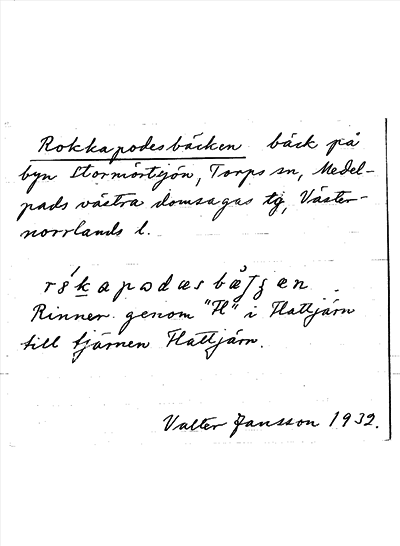 Rokkapodesbäcken bäck på
byn Stormörtsjön, Torps sn, Medel-
pads västra domsagas tg, Väster-
norrlands l.
Rinner genom "Fl" i Flattjärn
till tjärnen Flattjärn.
Valter Jansson 1932.